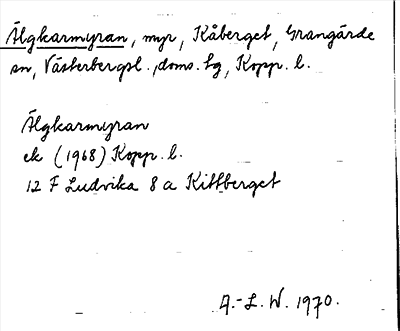 Älgkarmyran, myr, Kåberget, Grangärde
sn, Västerbergsl. doms. tg, Kopp. l.
Älgkarmyran
ek (1968) Kopp. l.
12 F Ludvika 8 a Kittberget
A.-L. W. 1970.